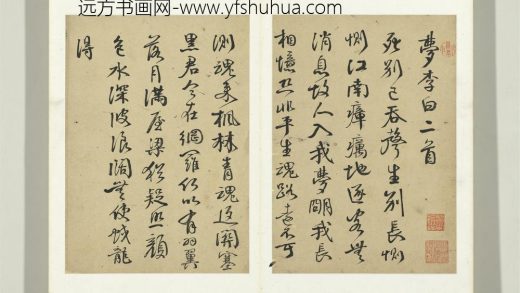 远方书画网-www.yfshuhua.com
夢李白二首
死別已吞聲生別長惻
惻江南瘴癘地逐客無
消息故人入我夢明我長
相憶恐非平生魂路遠不可
測魂來楓林青魂返關塞
黑君今在網羅何以有羽翼
落月滿屋梁猶疑照顏
色水深波浪闊無使蛟龍
得